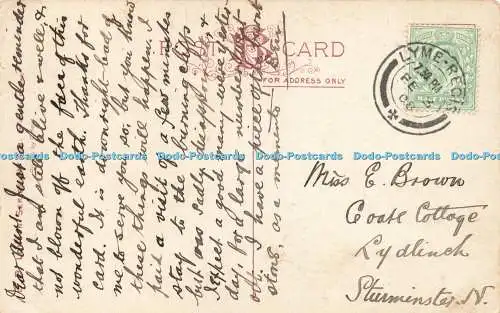 POST CARD
FOR ADDRESS ONLY
LYME-REGIS
Dear Aunt. Just a gentle reminder
that I am still alive & well, &
not blown off the face of this
wonderful earth. Thanks for
card. It is downright bad of
me to serve you so, but you know
these things will happen. I
paid a visit of a few minutes
stay to the burning cliffs
but was sadly disappointed &
I expect a good many were yester-
day, for a large number went
I have a piece of the burnt
stone, as a memento
Miss E. Brown
Coate Cottage
Lydlinch
Sturminster. N.
Dodo-Postcards Dodo-Postcards Dodo-Postcards Dodo-Postcards Dodo-Postcards Dodo-Postcards